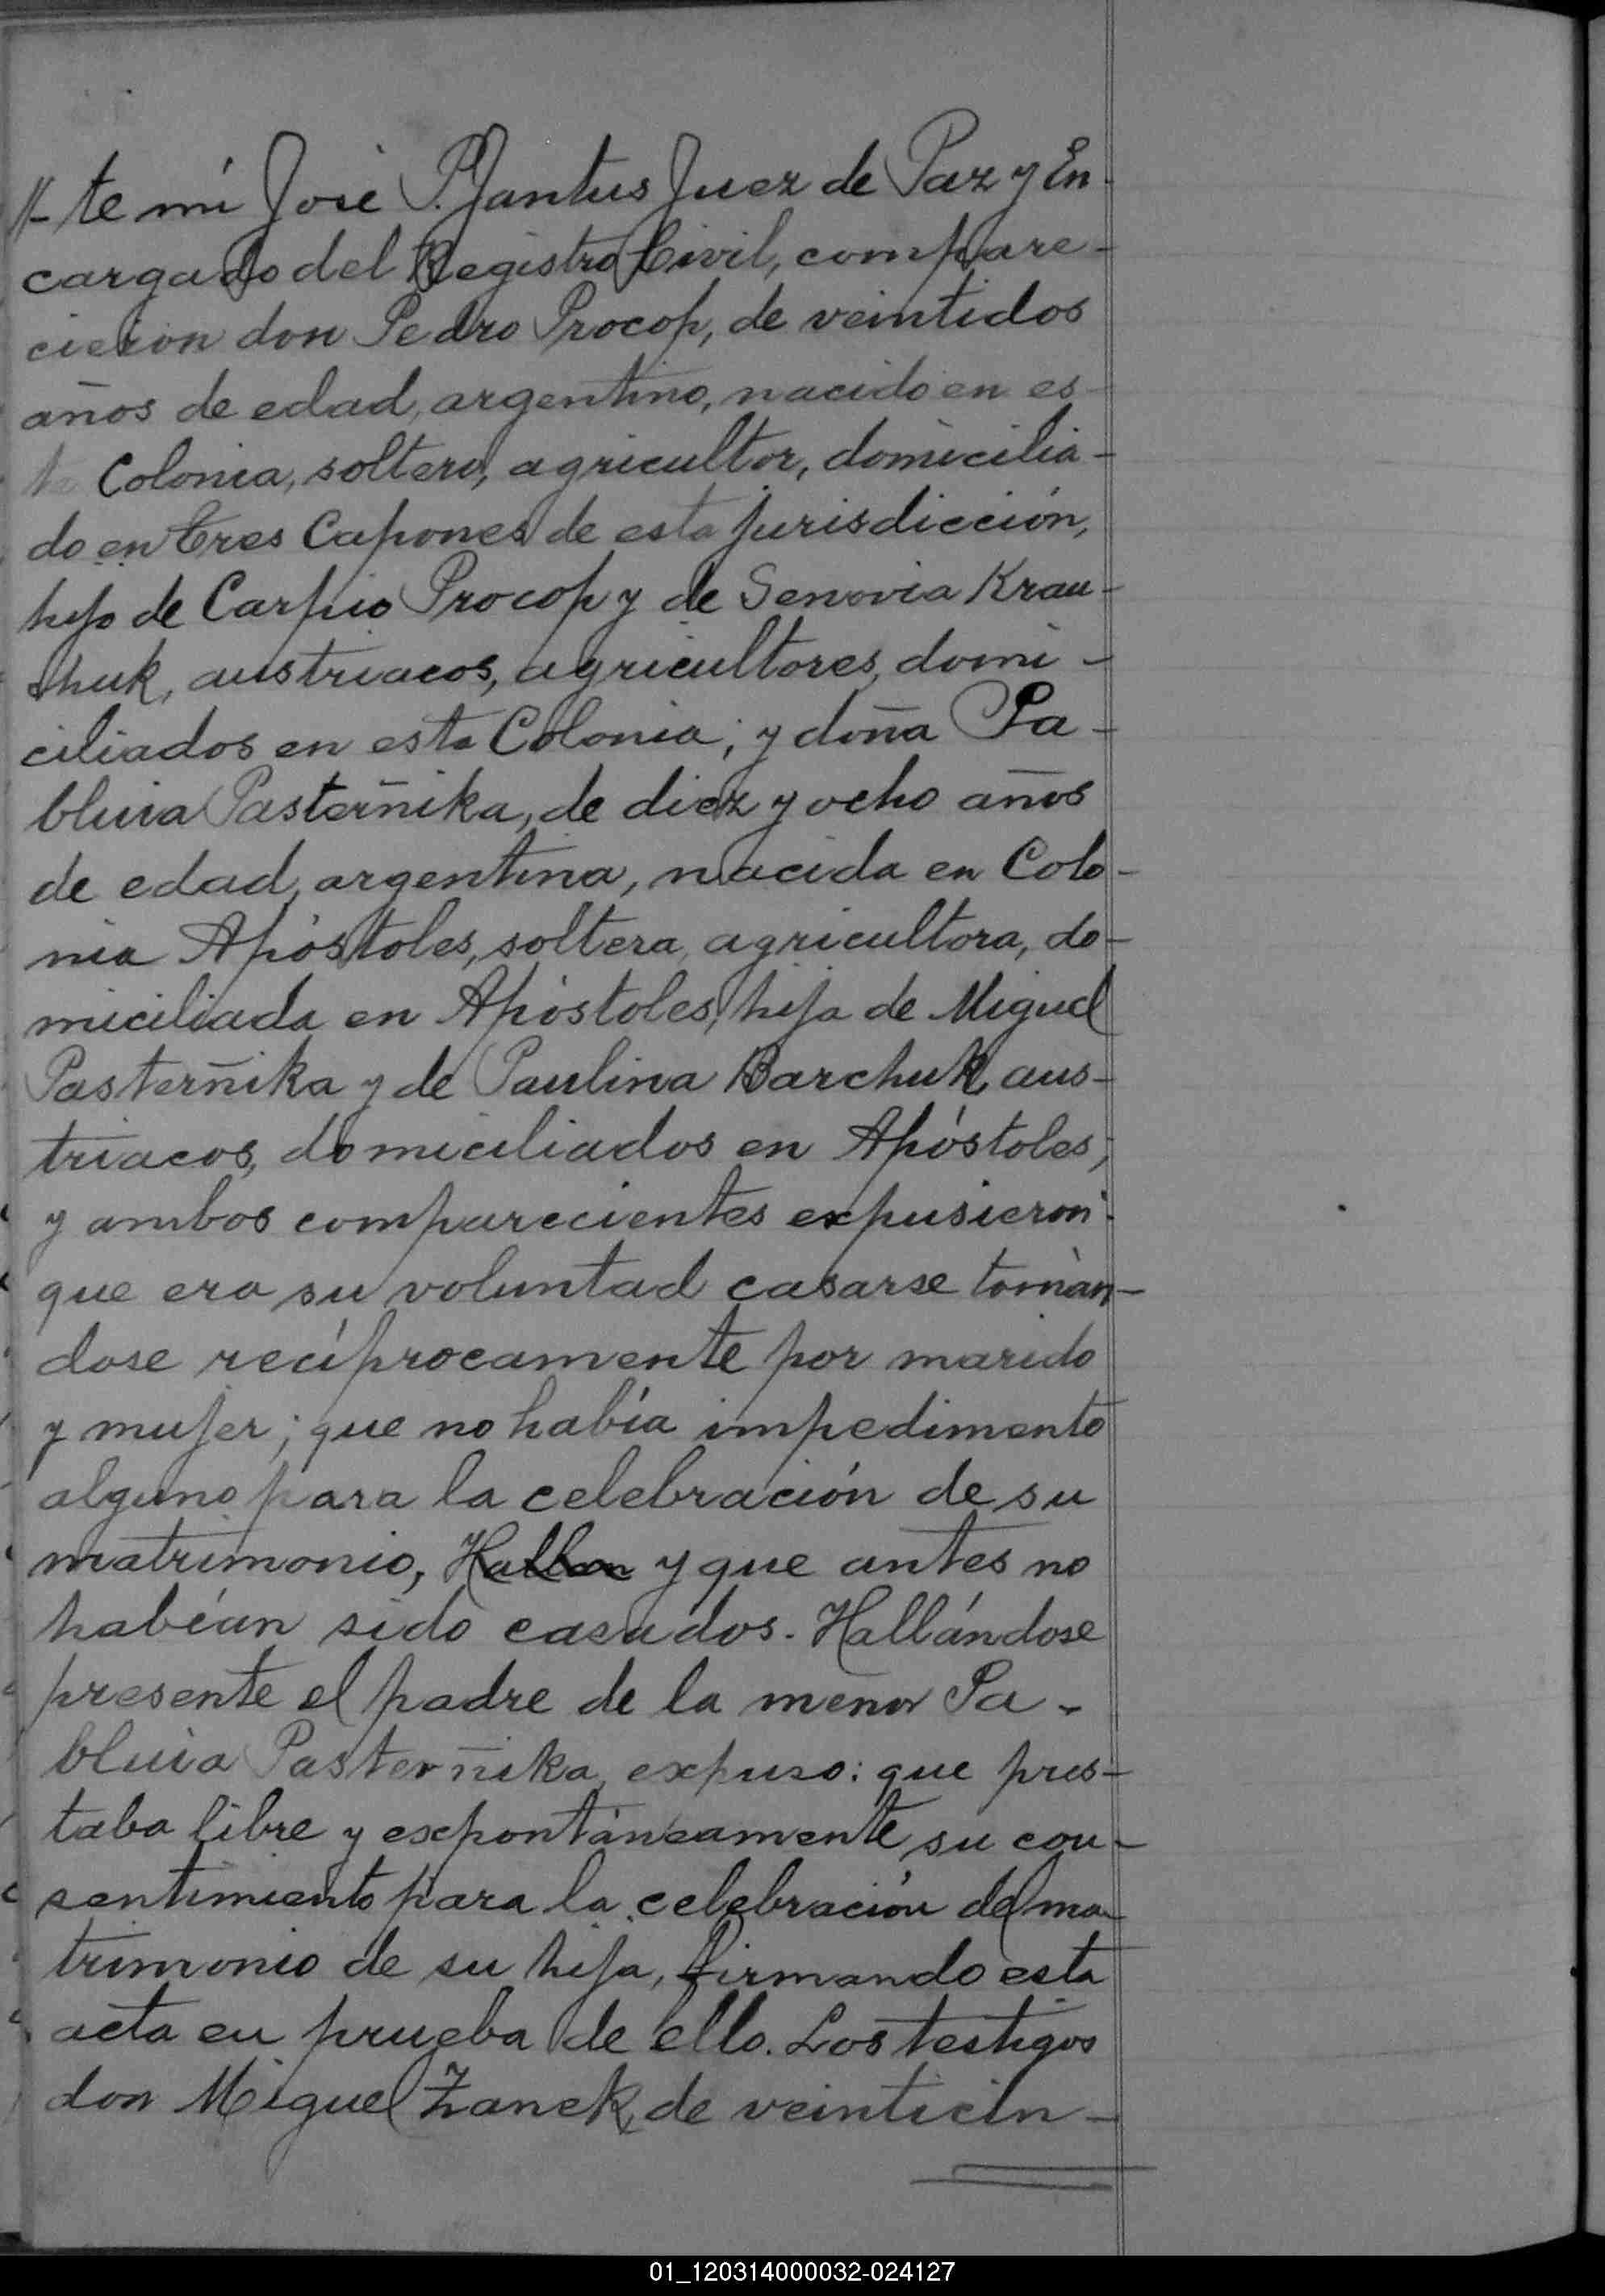 //- te mi José P. Jantus Juez de Paz y En-
cargado del Registro Civil, compare-
cieron don Pedro Procop, de veintidos
años de edad, argentino, nacido en es-
ta Colonia, soltero, agricultor, domicilia-
do en Tres Capones de esta jurisdicción,
hijo de Carpio Procop y de Senovia Krau-
chuk, austriacos, agricultores, domi-
ciliados en esta Colonia; y doña Pa-
bluia Pasterñika, de diez y ocho años
de edad, argentina, nacida en Colo-
nia Apóstoles, soltera, agricultora, do-
miciliada en Apóstoles, hija de Miguel
Pasterñika y de Paulina Barchuk, aus-
triacos, domiciliados en Apóstoles;
y ambos comparecientes expusieron:
que era su voluntad casarse tomàn-
dose recíprocamente por marido
y mujer; que no había impedimento
alguno para la celebración de su
matrimonio, Hallan y que antes no
habían sido casados. Hallándose
presente el padre de la menor Pa-
bluia Pasterñika, expuso: que pres-
taba libre y expontáneamente su con-
sentimiento para la celebración del ma-
trimonio de su hija, firmando esta
acta en prueba de ello. Los testigos
don Miguel Zanek, de veinticin-
01_120314000032-024127